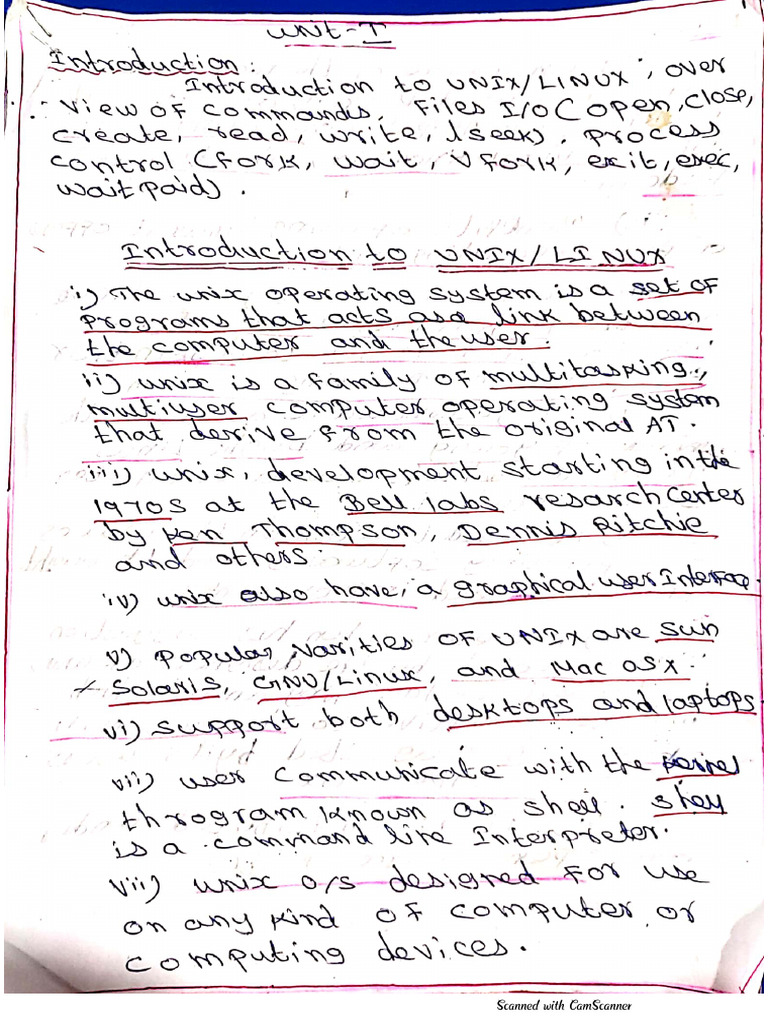 UNIT-I
Introduction:
Introduction to UNIX/LINUX, over
view of commands, Files I/O (open, close,
create, read, write, lseek). Process
control (fork, wait, Vfork, exit, exec,
waitpaid).
Introduction to UNIX/LINUX
i) The unix operating system is a set of
Programs that acts as a link between
the computer and the user.
ii) unix is a family of multitasking,
multiuser computer operating system
that derive from the original AT.
iii) unix, development starting in the
1970s at the Bell labs resarch center
by Ken Thompson, Dennis Ritchie
and others.
iv) unix also have, a graphical user Interface.
v) Popular varities of UNIX are Sun
Solaris, GNU/Linux, and Mac OS X.
vi) support both desktops and laptops
vii) user communicate with the kernel
throgram known as shell. shell
is a command line Interpreter.
vii) unix o/s designed for use
on any kind of computer or
computing devices.
Scanned with CamScanner